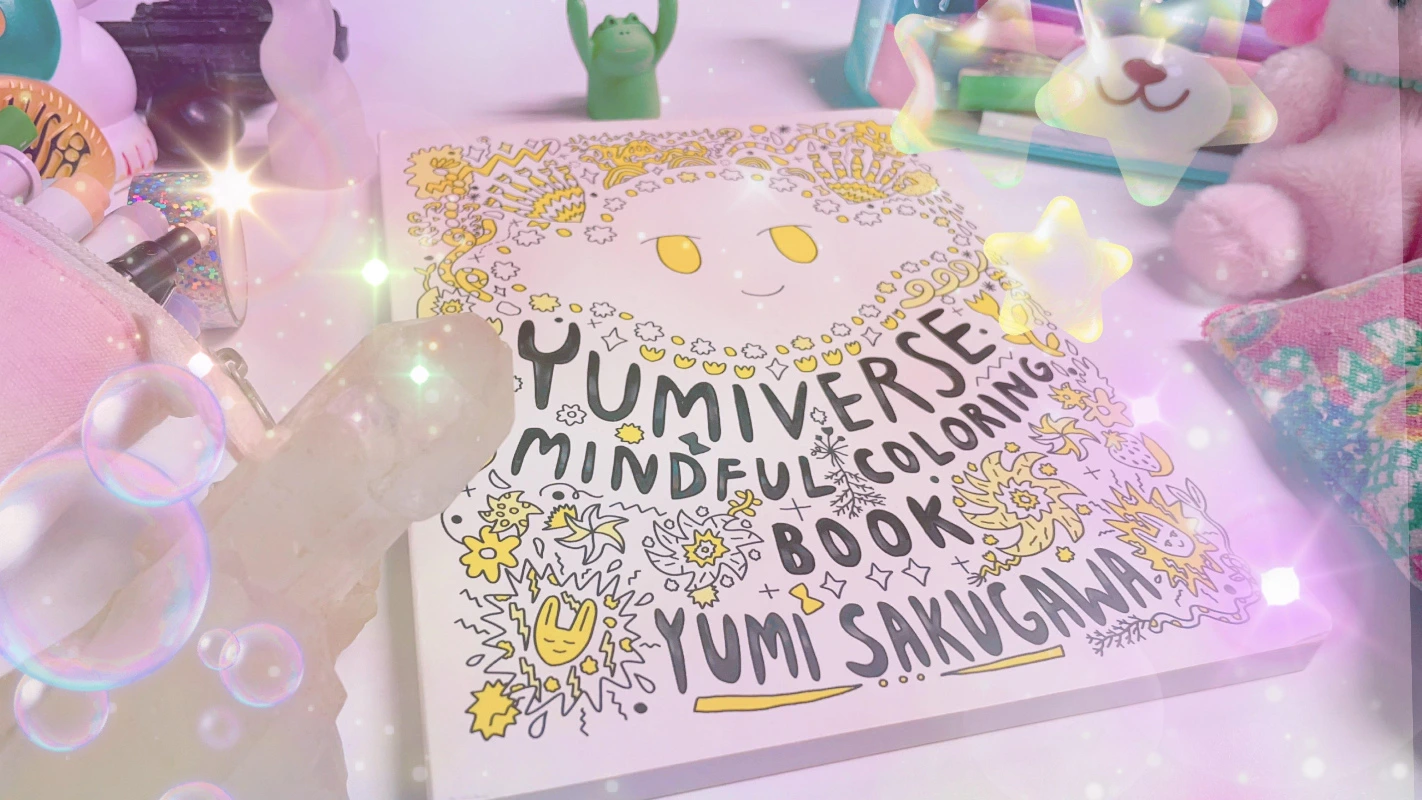 YUMIVERSE
MINDFUL COLORING
BOOK
YUMI SAKUGAWA